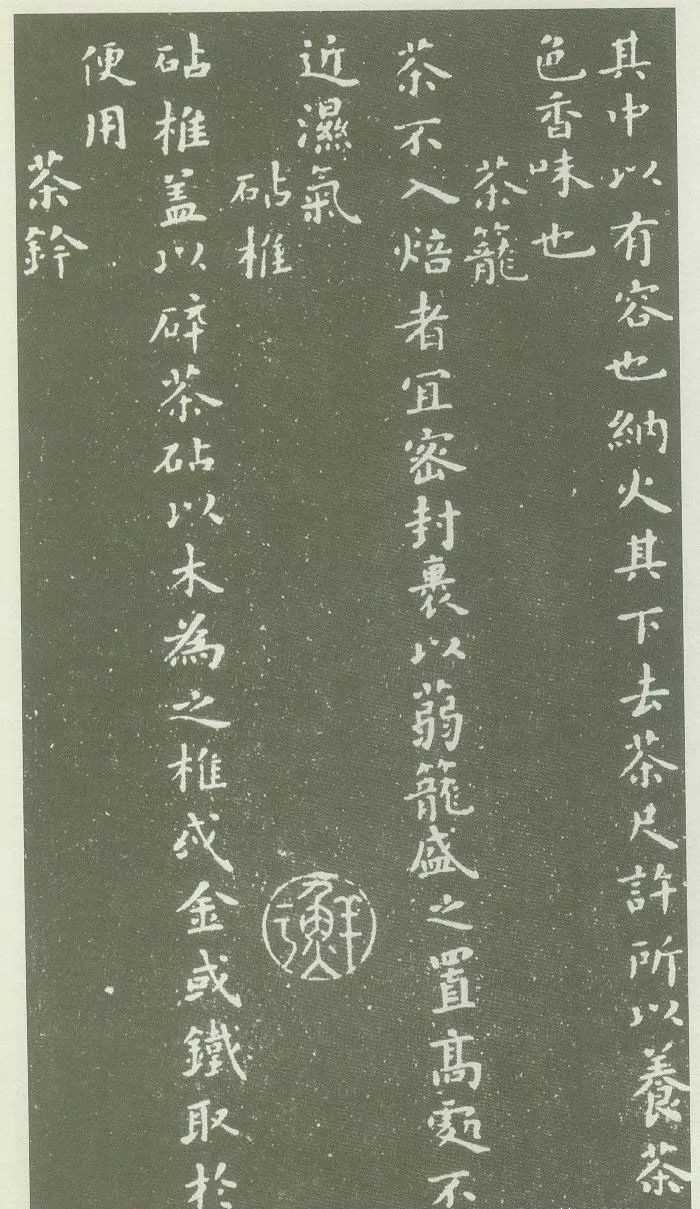 其中以有容也納火其下去茶尺許所以養茶
色香味也
茶籠
茶不入焙者宜密封裹以蒻籠盛之置高處不
近濕氣
砧椎
砧椎盖以碎茶砧以木為之椎或金或鐵取於
便用
茶鈐